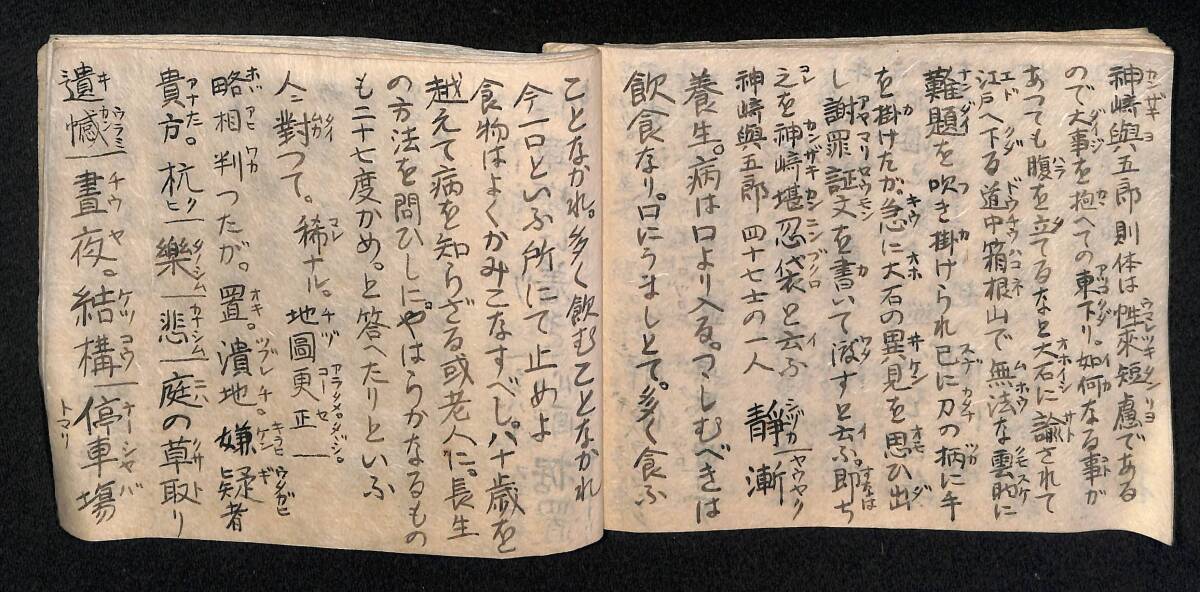 神崎與五郎則体は性來短慮である
ので大事を抱への東下り。如何なる事が
あつても腹を立てるなと大石に諭されて
江戸へ下る道中箱根山で無法な雲助に
難題を吹き掛けられ已に刀の柄に手
を掛けたが。急に大石の異見を思ひ出
し謝罪証文を書いて渡すと云ふ。即ち
之を神崎堪忍袋と云ふ
神崎與五郎四十七士の一人 靜 漸
養生。病は口より入る。つゝしむべきは
飲食なり。口にうましとて。多く食ふ
ことなかれ。多く飲むことなかれ
今一口といふ所にて止めよ
食物はよくかみこなすべし。八十歳を
越えて病を知らざる或老人に。長生
の方法を問ひしに。やはらかなるもの
も二十七度かめ。と答へたりといふ
人ニ對つて。稀ナル。地圖更正
略相判つたが。置。潰地 嫌疑者
貴方。杭 樂 悲 庭の草取り
遺憾 晝夜。結構 停車場